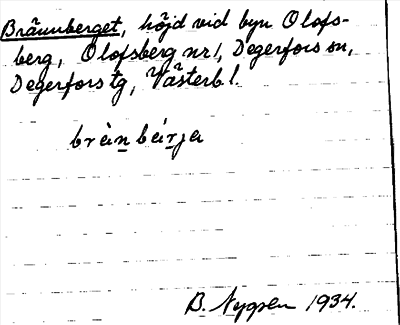 Brännberget, höjd vid byn Olofs-
berg, Olofsberg nr 1, Degerfors sn,
Degerfors tg, Västerb l.
brànbárja
B. Nygren 1934.